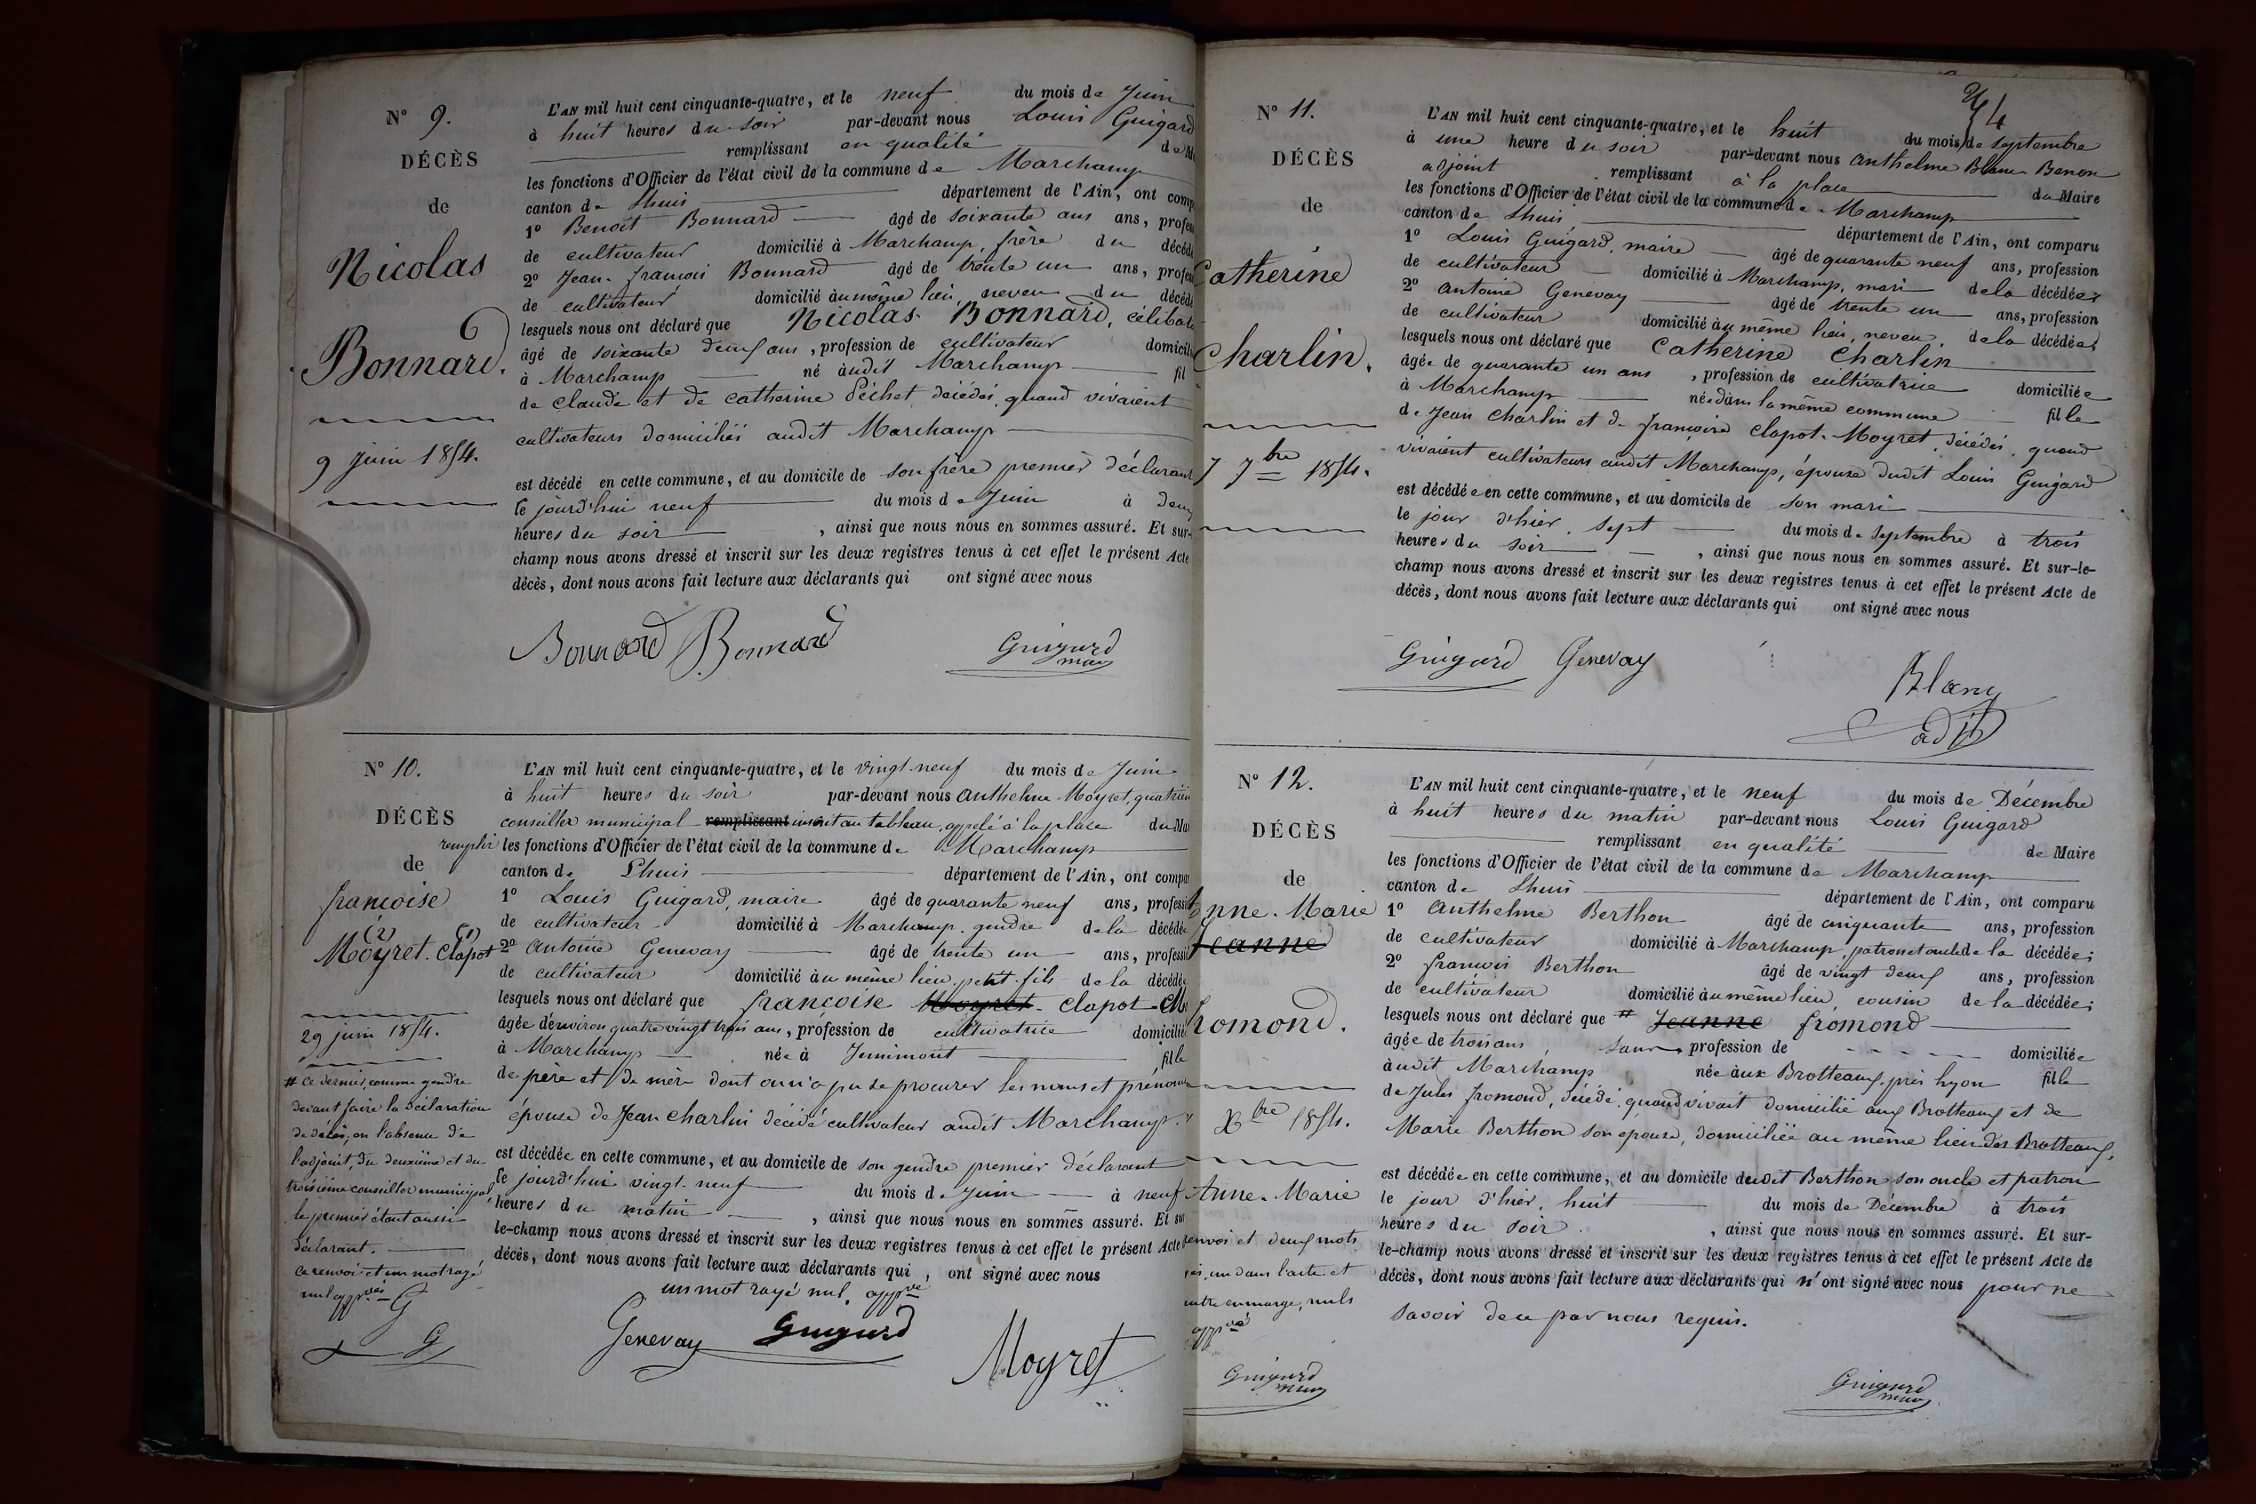 N° 9.
DÉCÈS
de
Nicolas
Bonnard.
9 juin 1854.
L'AN mil huit cent cinquante-quatre, et le neuf du mois de Juin
à huit heures du soir par-devant nous Louis Guigard
remplissant en qualité de M
les fonctions d'Officier de l'état civil de la commune de Marchamp
canton de Lhuis département de l'Ain, ont comp
1° Benoît Bonnard âgé de soixante ans ans, profes
de cultivateur domicilié à Marchamp, frère du décédé
2° Jean-françois Bonnard âgé de trente un ans, profes
de cultivateur domicilié au même lieu, neveu du décédé
lesquels nous ont déclaré que Nicolas Bonnard, célibat
âgé de soixante deux ans, profession de cultivateur domicili
à Marchamp né audit Marchamp fil
de Claude et de Catherine Péchet, décédés, quand vivaient
cultivateurs domiciliés audit Marchamp
est décédé en cette commune, et au domicile de son frère premier déclarant
le jourd'hui neuf du mois de Juin à deux
heures du soir, ainsi que nous nous en sommes assuré. Et sur-
champ nous avons dressé et inscrit sur les deux registres tenus à cet effet le présent Acte
décès, dont nous avons fait lecture aux déclarants qui ont signé avec nous
Bonnard Bonnard Guigard
maire
N° 10.
DÉCÈS
de
françoise
(2) (1)
Moyret-Clapot
29 juin 1854.
# Ce dernier, comme gendre
devant faire la déclaration
de décès, en l'absence de
l'adjoint, du deuxième et du
troisième conseiller municipal,
le premier étant aussi
déclarant.
Ce renvoi et un mot rayé
nul appvés G
G
L'AN mil huit cent cinquante-quatre, et le vingt-neuf du mois de Juin
à huit heures du soir par-devant nous Anthelme Moyret, quatrièm
conseiller municipal remplissant inscrit au tableau, appelé à la place du Mai
remplir les fonctions d'Officier de l'état civil de la commune de Marchamp
canton de Lhuis département de l'Ain, ont compar
1° Louis Guigard, maire âgé de quarante neuf ans, professi
de cultivateur domicilié à Marchamp, gendre de la décédée
2° Antoine Genevay âgé de trente un ans, professi
de cultivateur domicilié au même lieu, petit-fils de la décédée
lesquels nous ont déclaré que françoise Moyret-Clapot-Mo
âgée d'environ quatre vingt trois ans, profession de cultivatrice domiciliée
à Marchamp née à Jennimont fille
de père et de mère dont on n'a pu se procurer les noms et prénoms
épouse de Jean Charlin décédé cultivateur audit Marchamp.
est décédée en cette commune, et au domicile de son gendre premier déclarant
le jourd'hui vingt-neuf du mois de Juin à neuf
heures du matin, ainsi que nous nous en sommes assuré. Et sur
le-champ nous avons dressé et inscrit sur les deux registres tenus à cet effet le présent Acte
décès, dont nous avons fait lecture aux déclarants qui, ont signé avec nous
un mot rayé nul, appvé
Genevay Guigard Moyret
N° 11.
DÉCÈS
de
Catherine
Charlin.
7 7bre 1854.
L'AN mil huit cent cinquante-quatre, et le huit du mois de septembre
à une heure du soir par-devant nous Anthelme Blanc Benon
adjoint remplissant à la place du Maire
les fonctions d'Officier de l'état civil de la commune de Marchamp
canton de Lhuis département de l'Ain, ont comparu
1° Louis Guigard, maire âgé de quarante neuf ans, profession
de cultivateur domicilié à Marchamp, mari de la décédée;
2° Antoine Genevay âgé de trente un ans, profession
de cultivateur domicilié au même lieu, neveu de la décédée;
lesquels nous ont déclaré que Catherine Charlin
âgée de quarante un ans, profession de cultivatrice domiciliée
à Marchamp née dans la même commune fille
de Jean Charlin et de françoise Clapot-Moyret, décédés, quand
vivaient cultivateurs audit Marchamp, épouse dudit Louis Guigard
est décédée en cette commune, et au domicile de son mari
le jour d'hier, sept du mois de Septembre à trois
heures du soir, ainsi que nous nous en sommes assuré. Et sur-le-
champ nous avons dressé et inscrit sur les deux registres tenus à cet effet le présent Acte de
décès, dont nous avons fait lecture aux déclarants qui ont signé avec nous
Guigard Genevay
Blanc
adjt
N° 12.
DÉCÈS
de
Anne-Marie
Jeanne
fromond.
Xbre 1854.
Anne-Marie
renvoi et deux mots
és, un dans l'acte et
autre en marge, nuls
appvé
Guigard
maire
L'AN mil huit cent cinquante-quatre, et le neuf du mois de Décembre
à huit heures du matin par-devant nous Louis Guigard
remplissant en qualité de Maire
les fonctions d'Officier de l'état civil de la commune de Marchamp
canton de Lhuis département de l'Ain, ont comparu
1° Anthelme Berthon âgé de cinquante ans, profession
de cultivateur domicilié à Marchamp, patron et oncle de la décédée;
2° françois Berthon âgé de vingt deux ans, profession
de cultivateur domicilié au même lieu, cousin de la décédée;
lesquels nous ont déclaré que # Jeanne fromond
âgée de trois ans, sans profession de domiciliée
audit Marchamp née aux Brotteaux, près Lyon fille
de Jules fromond, décédé, quand vivait domicilié aux Brotteaux et de
Marie Berthon son épouse, domiciliée au même lieu des Brotteaux,
est décédée en cette commune, et au domicile dudit Berthon son oncle et patron
le jour d'hier, huit du mois de Décembre à trois
heures du soir, ainsi que nous nous en sommes assuré. Et sur-
le-champ nous avons dressé et inscrit sur les deux registres tenus à cet effet le présent Acte de
décès, dont nous avons fait lecture aux déclarants qui n'ont signé avec nous pour ne
savoir de ce par nous requis.
Guigard
maire